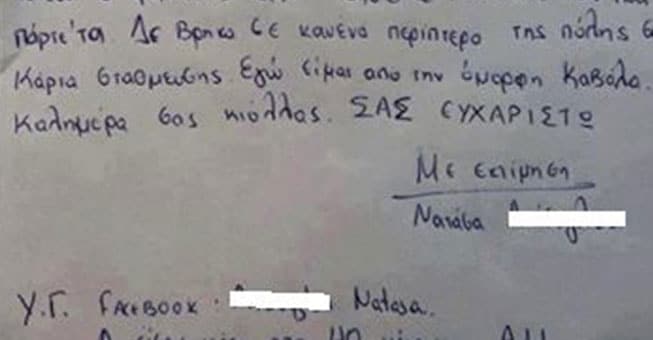 πάρτε'τα. Δε βρήκα σε κανένα περίπτερο της πόλης σ
Κάρτα στάθμευσης. Εγώ είμαι απο την όμορφη Καβάλα.
Καλημέρα σας κιόλλας. ΣΑΣ ΕΥΧΑΡΙΣΤΩ
Με εκτίμηση
Νατάσα
Υ.Γ. FACEBOOK : Natasa.